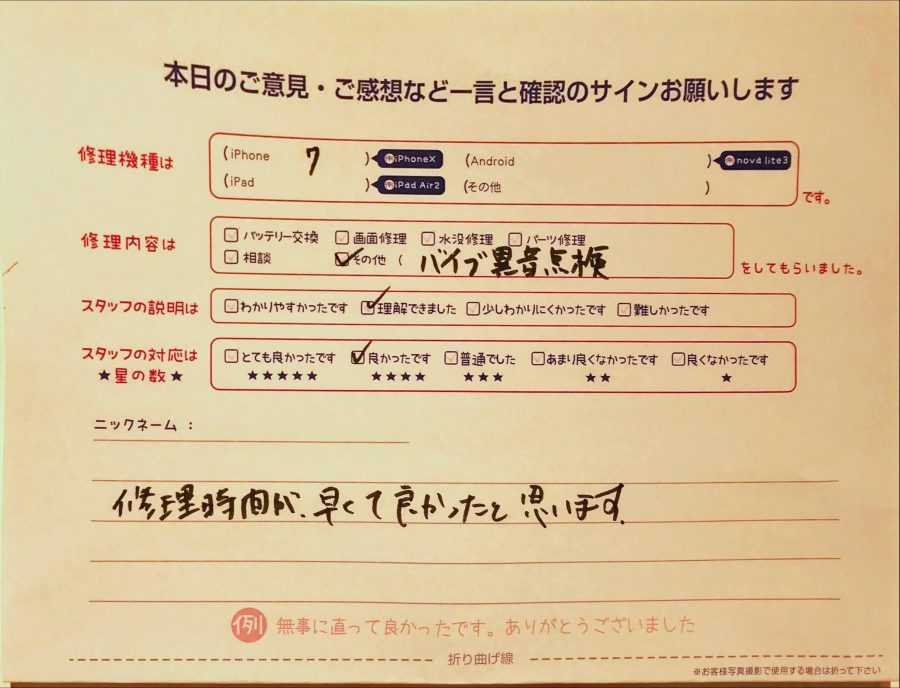 本日のご意見・ご感想など一言と確認のサインお願いします
修理機種は (iPhone 7 ) 例iPhoneX (Android ) 例nova lite3
(iPad ) 例iPad Air2 (その他 ) です。
修理内容は バッテリー交換 画面修理 水没修理 パーツ修理
相談 その他 ( バイブ異音点検 をしてもらいました。
スタッフの説明は わかりやすかったです 理解できました 少しわかりにくかったです 難しかったです
スタッフの対応は とても良かったです 良かったです 普通でした あまり良くなかったです 良くなかったです
★星の数★ ★★★★★ ★★★★ ★★★ ★★ ★
ニックネーム :
修理時間が、早くて良かったと思います。
例 無事に直って良かったです。ありがとうございました
折り曲げ線
※お客様写真撮影で使用する場合は折って下さい